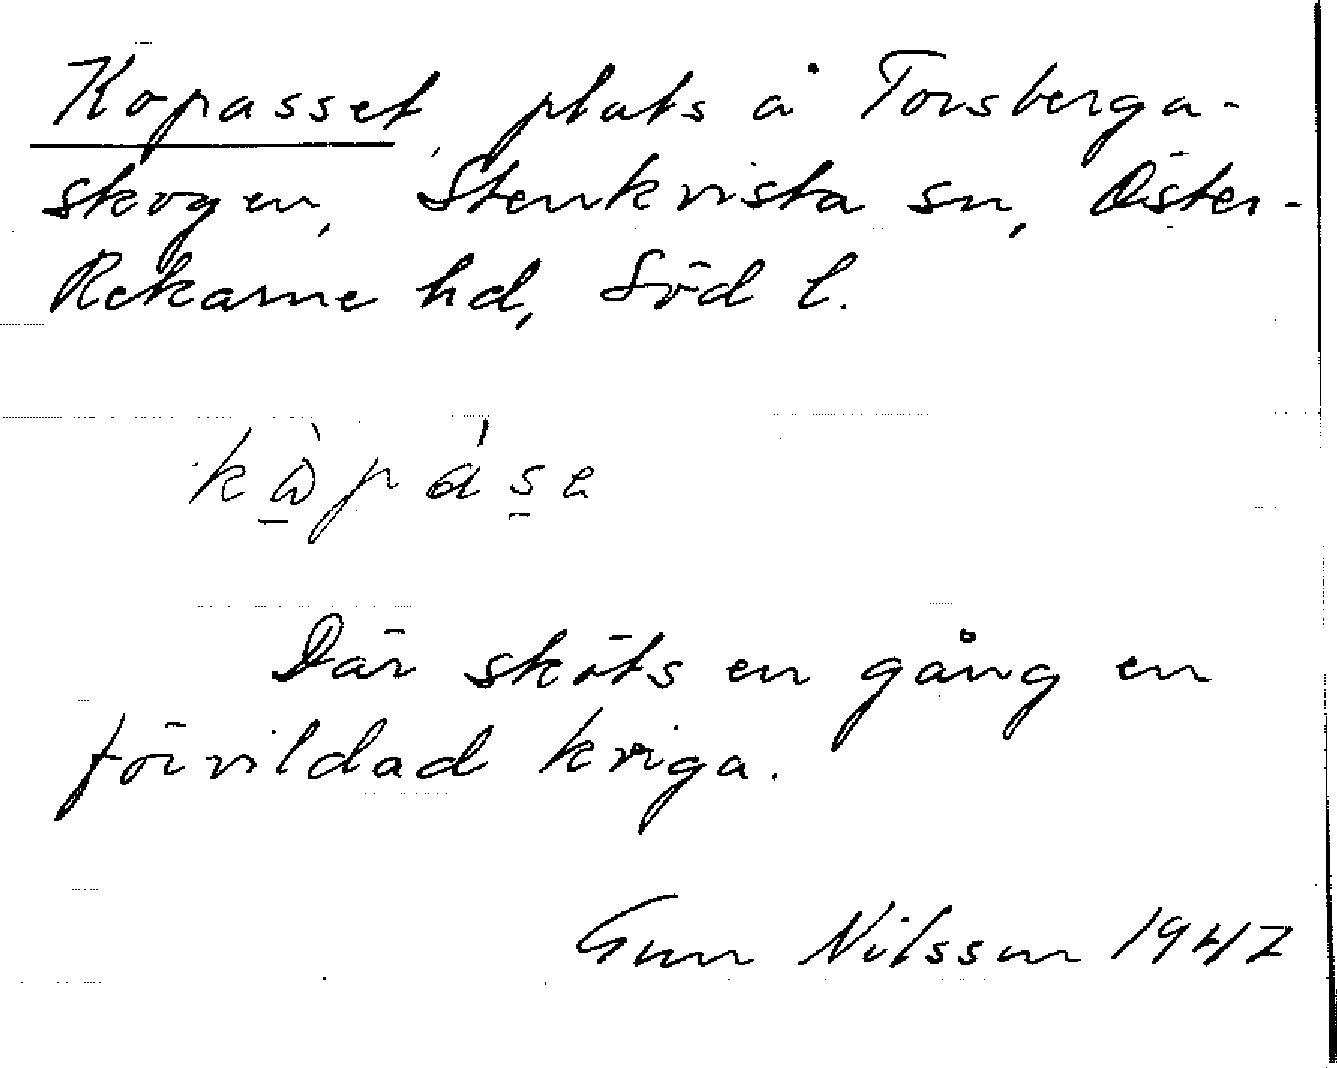 Kopasset, plats å Torsberga-
skogen, Stenkvista sn, Öster-
Rekarne hd, Söd l.
kòpáse
Där sköts en gång en
förvildad kviga.
Gun Nilsson 1947